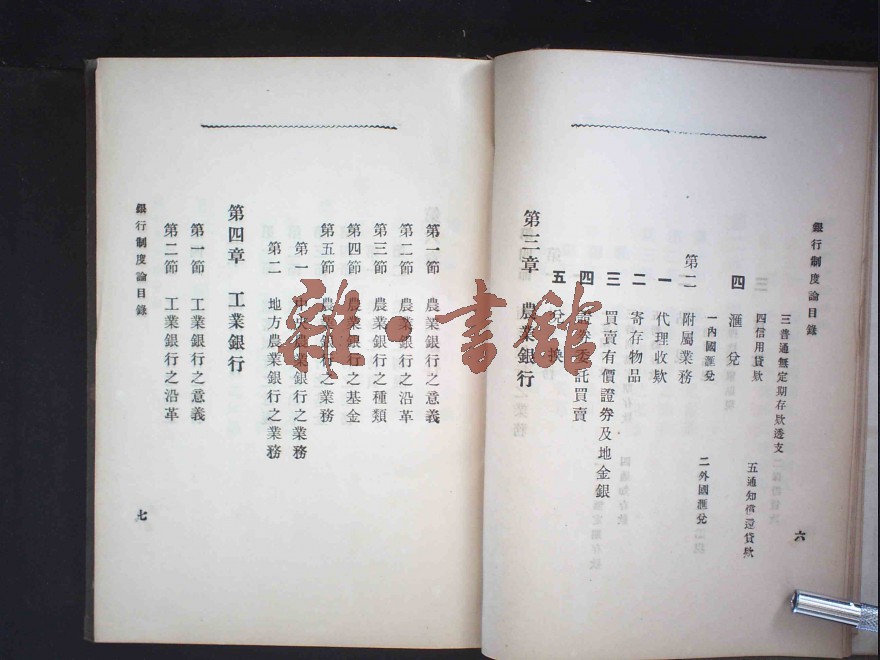 銀行制度論目錄
三普通無定期存款透支
四信用貸款
五通知償還貸款
四 滙兌
一內國滙兌
二外國滙兌
第二 附屬業務
一 代理收款
二 寄存物品
三 買賣有價證券及地金銀
四 證券委託買賣
五 兌換
第三章 農業銀行
六
第一節 農業銀行之意義
第二節 農業銀行之沿革
第三節 農業銀行之種類
第四節 農業銀行之基金
第五節 農業銀行之業務
第一 中央農業銀行之業務
第二 地方農業銀行之業務
第四章 工業銀行
第一節 工業銀行之意義
第二節 工業銀行之沿革
銀行制度論目錄
七
雜·書館